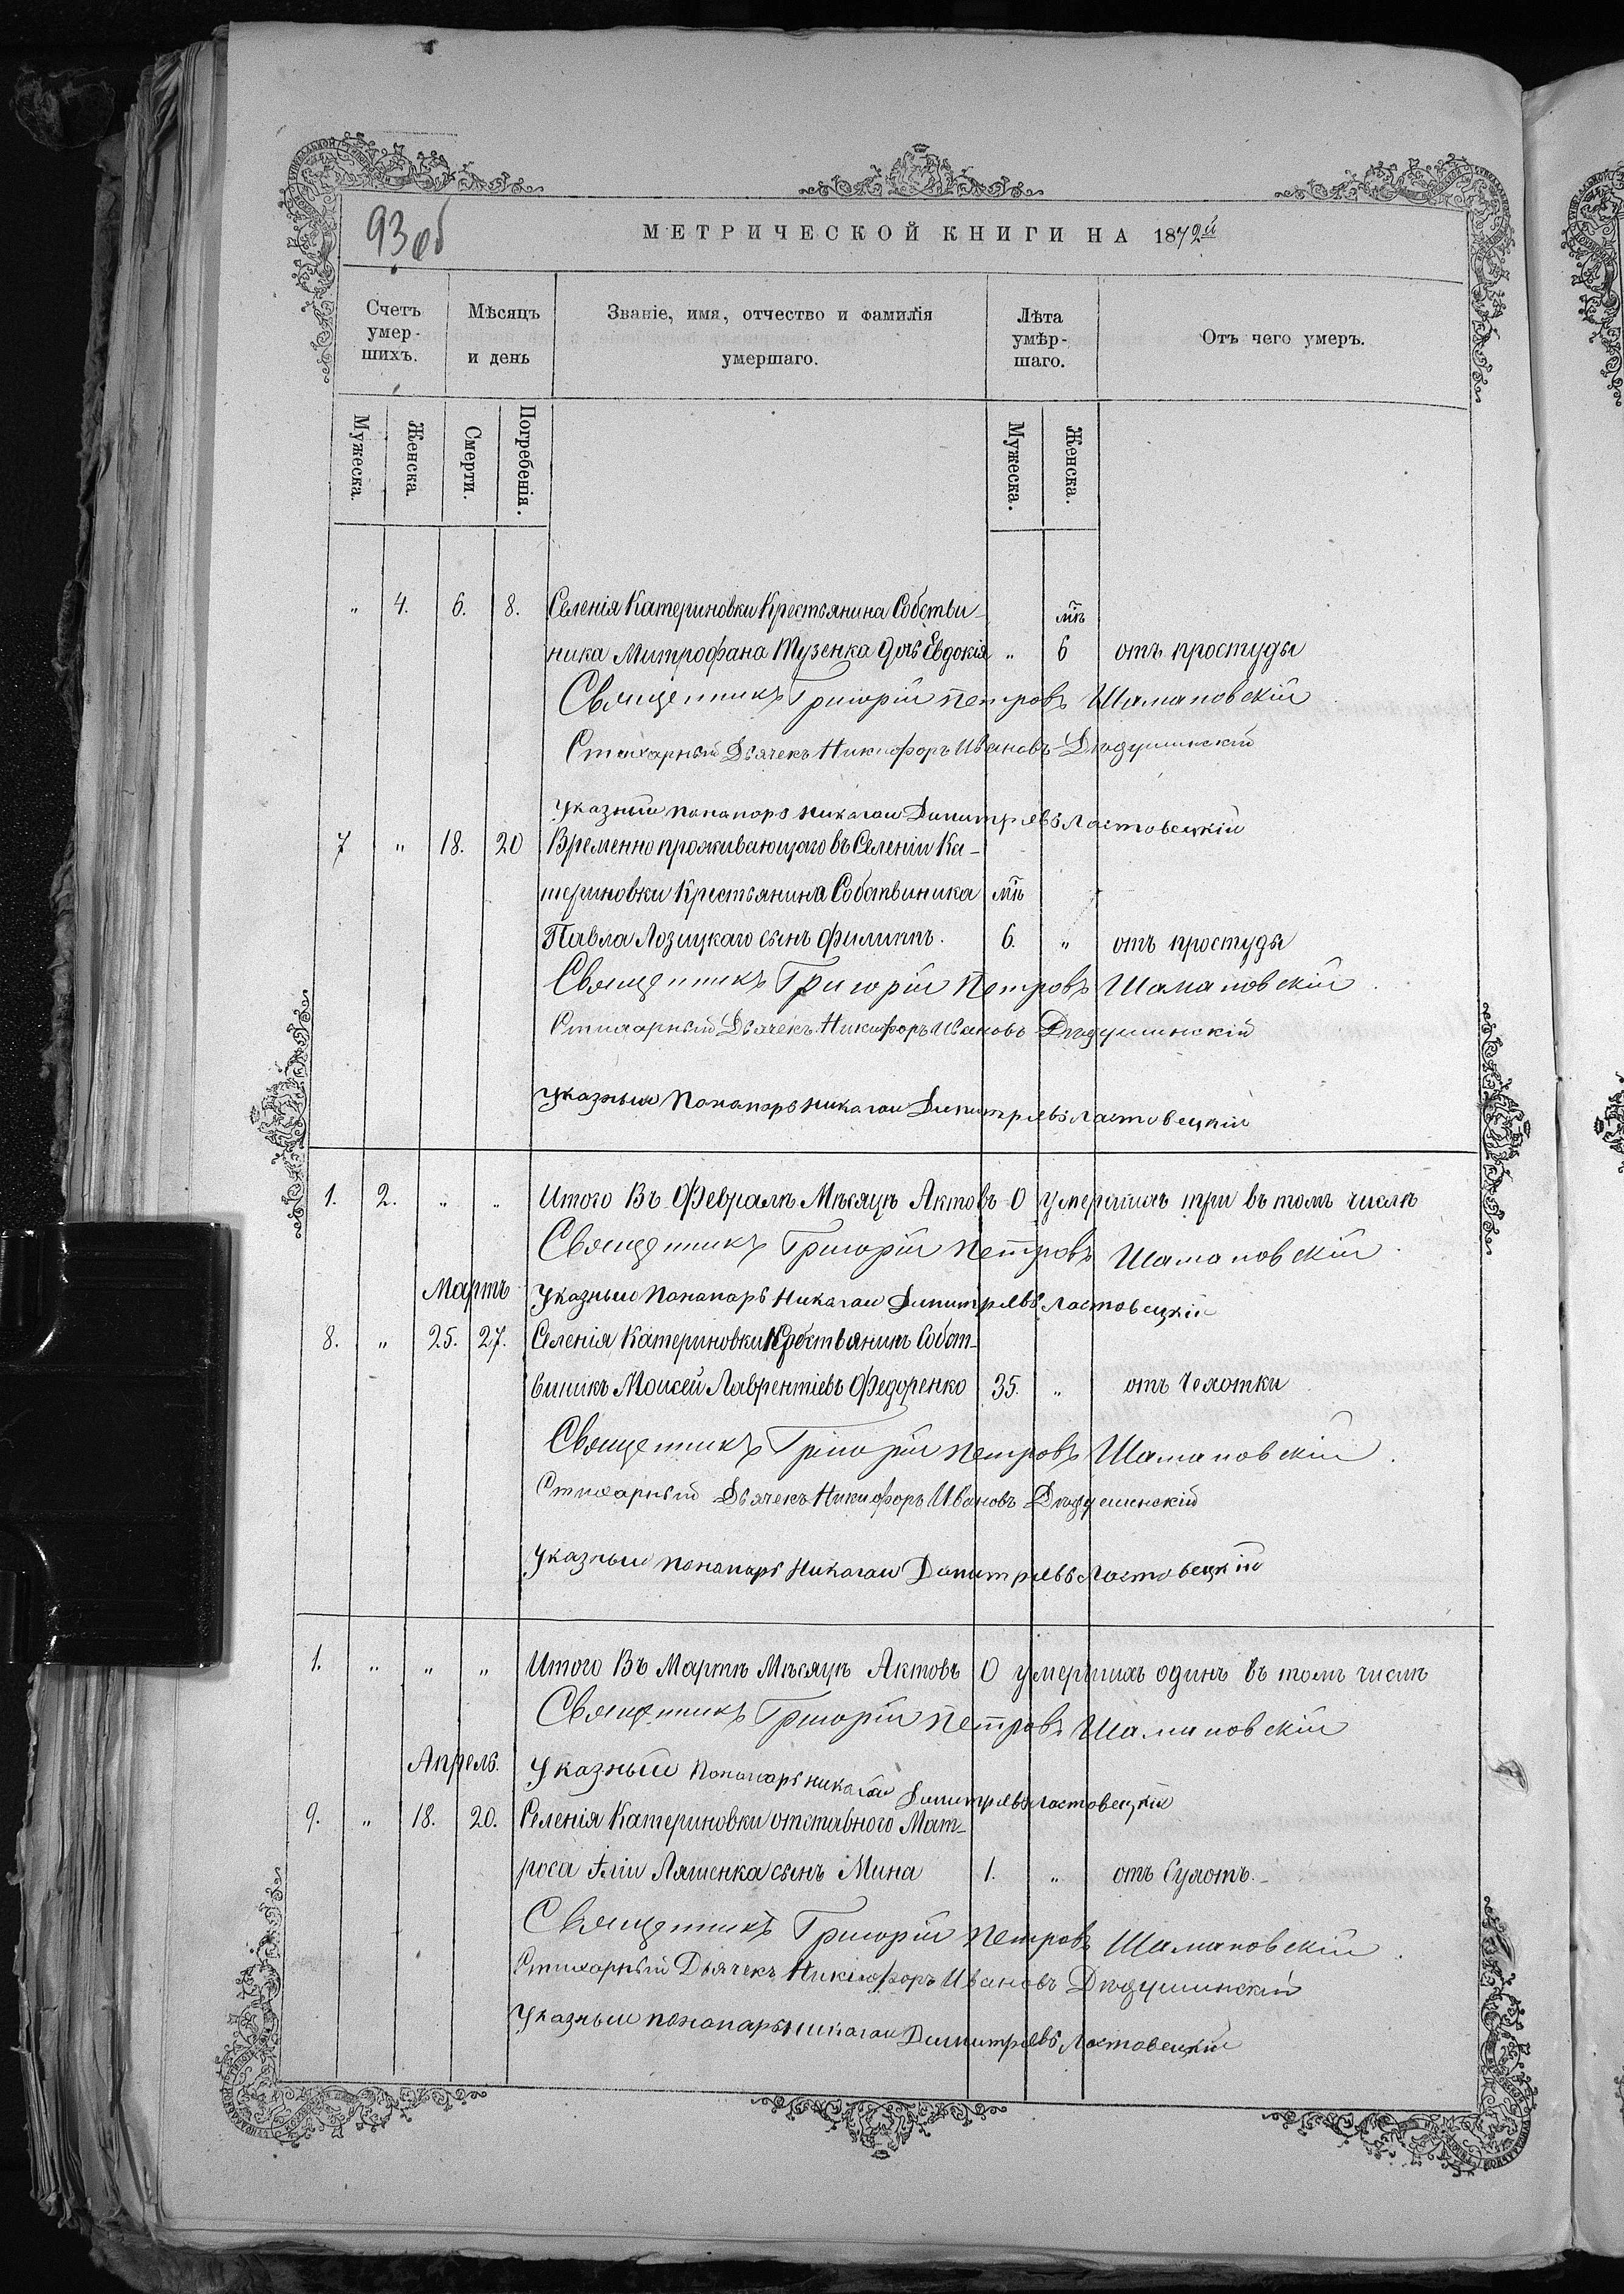 93 об
МЕТРИЧЕСКОЙ КНИГИ НА 1872й
Счетъ умер-шихъ.
Мѣсяцъ и день
Званіе, имя, отчество и фамилія умершаго.
Лѣта умѣр-шаго.
Отъ чего умеръ.
Мужеска.
Женска.
Смерти.
Погребенія.
Мужеска.
Женска.
" 4. 6. 8. Селенія Катериновки Крестьянина Собстви- мц̃ъ
ника Митрофана Тузенка дочь Евдокія " 6 отъ простуды
Священникъ Григорій Петровъ Шамановскій
Стихарный Дьячекъ Никифоръ Ивановъ
Указный Пономарь Николай Димитріевъ Ластовецкій
7 " 18. 20 Временно проживающаго въ Селеніи Ка-
териновки Крестьянина Собствиника мц̃ъ
Павла Лозицкаго сынъ Филиппъ. 6. " отъ простуды
Священникъ Григорій Петровъ Шамановскій
Стихарный Дьячекъ Никифоръ Ивановъ
Указный Пономарь Николай Димитріевъ Ластовецкій
1. 2. " " Итого Въ Февралѣ Мѣсяцѣ Актовъ 0 умершихъ три въ томъ числѣ
Священникъ Григорій Петровъ Шамановскій
Мартъ Указный Пономарь Николай Димитріевъ Ластовецкій
8. " 25. 27. Селенія Катериновки Крестьянинъ Собст-
виникъ Моисей Лаврентіевъ Федоренко 35. " отъ Чехотки
Священникъ Григорій Петровъ Шамановскій
Стихарный Дьячекъ Никифоръ Ивановъ
Указный Пономарь Николай Димитріевъ Ластовецкій
1. " " " Итого Въ Мартѣ Мѣсяцѣ Актовъ 0 умершихъ одинъ въ томъ числѣ
Священникъ Григорій Петровъ Шамановскій
Апрель. Указный Пономарь Николай Димитріевъ Ластовецкій
9. " 18. 20. Селенія Катериновки отставного Мат-
роса Іліи Ляшенка сынъ Мина 1. " отъ Сухотъ.
Священникъ Григорій Петровъ Шамановскій
Стихарный Дьячекъ Никифоръ Ивановъ
Указный Пономарь Николай Димитріевъ Ластовецкій